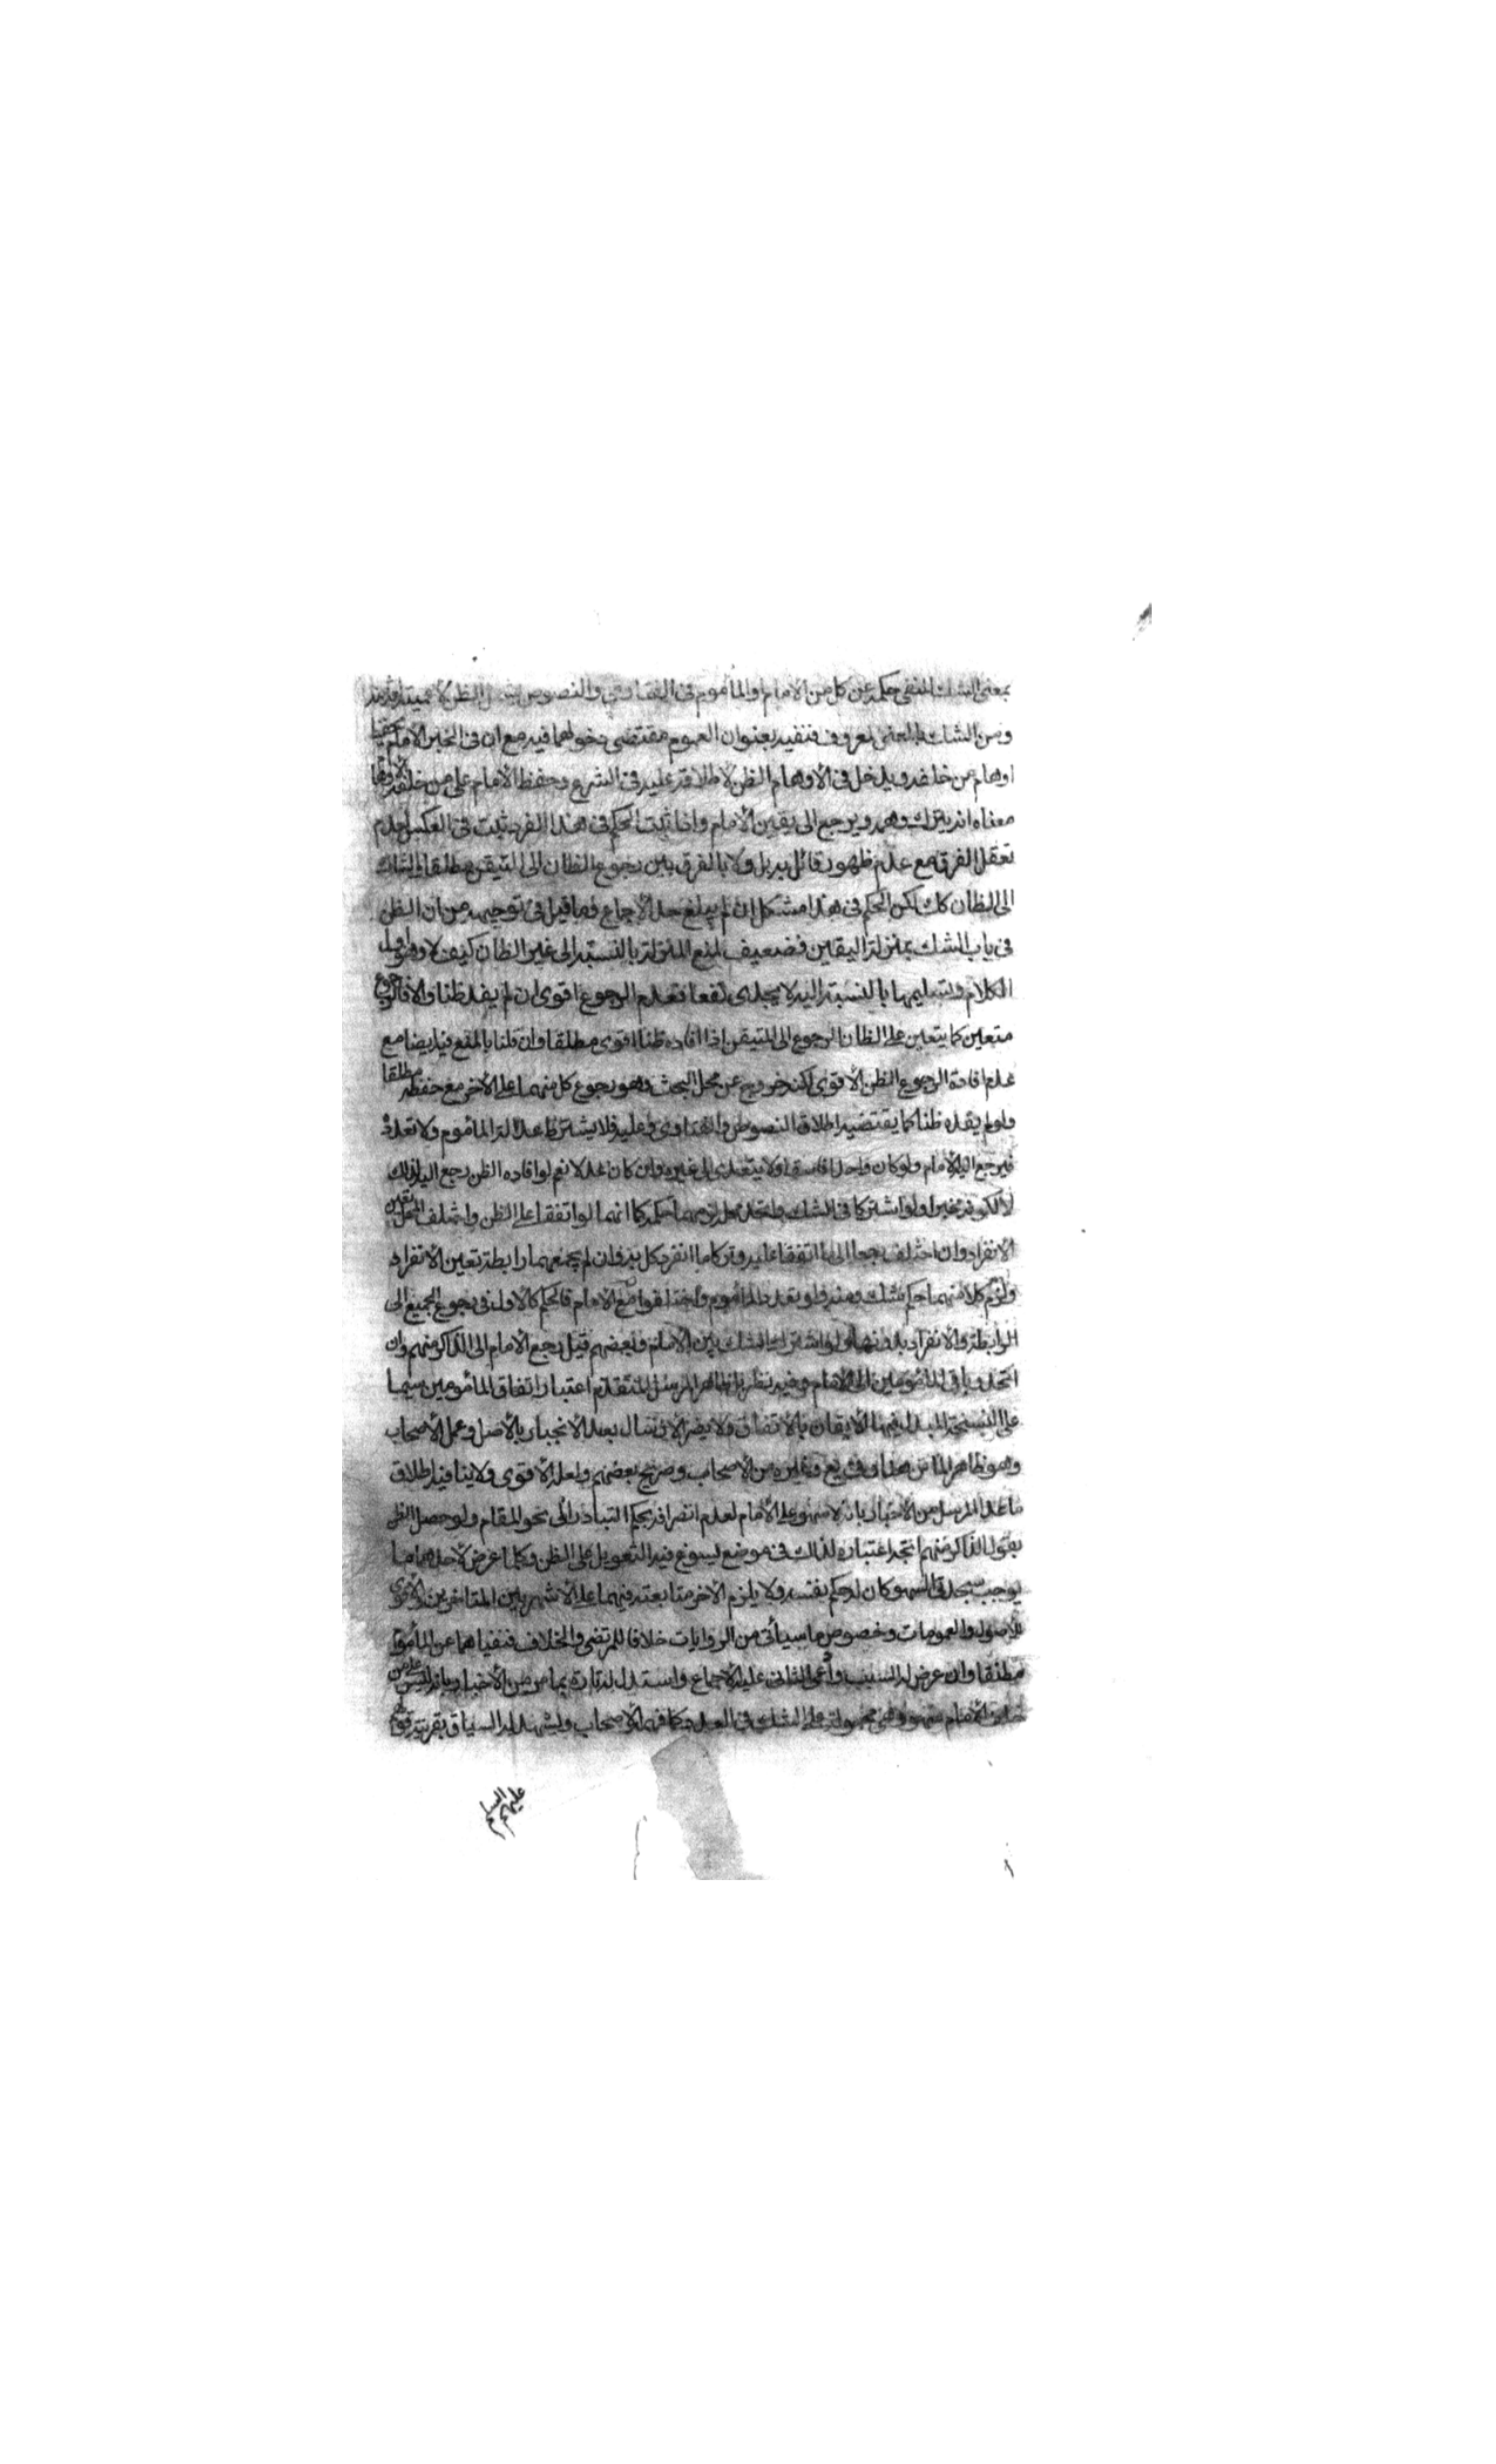 بمعنى الشك المنفى حكمه عن كل من الامام والمأموم فى الفتاوى والنصوص يشمل الظن لأعميته لغة منه
ومن الشك بالمعنى المعروف فنفيه بعنوان العموم مقتضى دخولهما فيه مع ان فى الخبر الامام يحفظ
اوهام من خلفه ويدخل فى الأوهام الظن لاطلاقه عليه فى الشرع وحفظ الامام على من خلفه
معناه انه يترك وهمه ويرجع الى يقين الأمام واذا ثبت الحكم فى هذا الفرد ثبت فى العكس لعدم
تعقل الفرق مع عدم ظهور قائل به بل ولا بالفرق بين رجوع الظان الى المتيقن مطلقا والشاك
الى الظان كك لكن الحكم فى هذا مشكل ان لم يبلغ حد الاجماع فما قيل فى توجيهه من ان الظن
فى باب الشك بمنزلة اليقين فضعيف لمنع المنزلة بالنسبة الى غير الظان كيف لا وهو اول
الكلام وتسليمها بالنسبة اليه لا يجدى نفعا فعدم الرجوع اقوى ان لم يفد ظنا والا فالرجوع
متعين كما يتعين على الظان الرجوع الى المتيقن اذا افاده ظنا اقوى مطلقا وان قلنا بالمنع فيه ايضا مع
عدم افادة الرجوع الظن الأقوى لكنه خروج عن محل البحث وهو رجوع كل منهما على الأخر مع حفظه مطلقا
ولو لم يفده ظنا كما يقتضيه اطلاق النصوص والفتاوى وعليه فلا يشترط عدالة المأموم ولا تعدده
فيرجع اليه الأمام ولو كان واحدا فاسقا ولا يتعدى الى غيره وان كان عدلا نعم لو افاده الظن رجع اليه لذلك
لا لكونه مخبرا ولو اشتركا فى الشك واتحد محله لزمهما حكمه كما انهما لو اتفقا على الظن واختلف المحل تعين
الانفراد وان اختلف رجعا الى ما اتفقا عليه وتركا ما انفرد كل به وان لم يجمعهما رابطة تعين الانفراد
ولزم كلا منهما حكم شكه ومنه ولو تعدد المأموم واختلفوا مع الامام فالحكم كالأول فى رجوع الجميع الى
الرابطة والأنفراد بدونها ولو اشترك الشك بين الامام وبعضهم قيل رجع الأمام الى الذاكر منهم وان
اتحد وباقى المأمومين الى الامام وفيه نظر بل ظاهر المرسل المتقدم اعتبار اتفاق المأمومين سيما
على النسخة المبدل فيها الأيقان بالاتفاق ولا يضر الارسال بعد الانجبار بالأصل وعمل الأصحاب
وهو ظاهر الماتن هنا وفى يع وغيره من الأصحاب وصريح بعضهم ولعله الأقوى ولا ينافيه اطلاق
ما عدا المرسل من الأخبار بانه لا سهو على الأمام لعدم انصرافه بحكم التبادر الى نحو المقام ولو حصل الظن
بقول الذاكر منهم اتجه اعتباره لذلك فى موضع يسوغ فيه التعويل على الظن وكلما عرض لأحدهما ما
يوجب سجدتى السهو كان له حكم نفسه ولا يلزم الأخر متابعته فيهما على الأشهر بين المتاخرين
للأصول والعمومات وخصوص ما سيأتى من الروايات خلافا للمرتضى والخلاف فنفياهما عن المأموم
مطلقا وان عرض له السبب وادعى الثانى عليه الأجماع واستدل له تارة بما مر من الأخبار وبانه ليس على من
خلف الأمام سهو وهى محمولة على الشك فى العدد كما فهمه الأصحاب ويشهد له السياق بقرينة
عليهم السلم